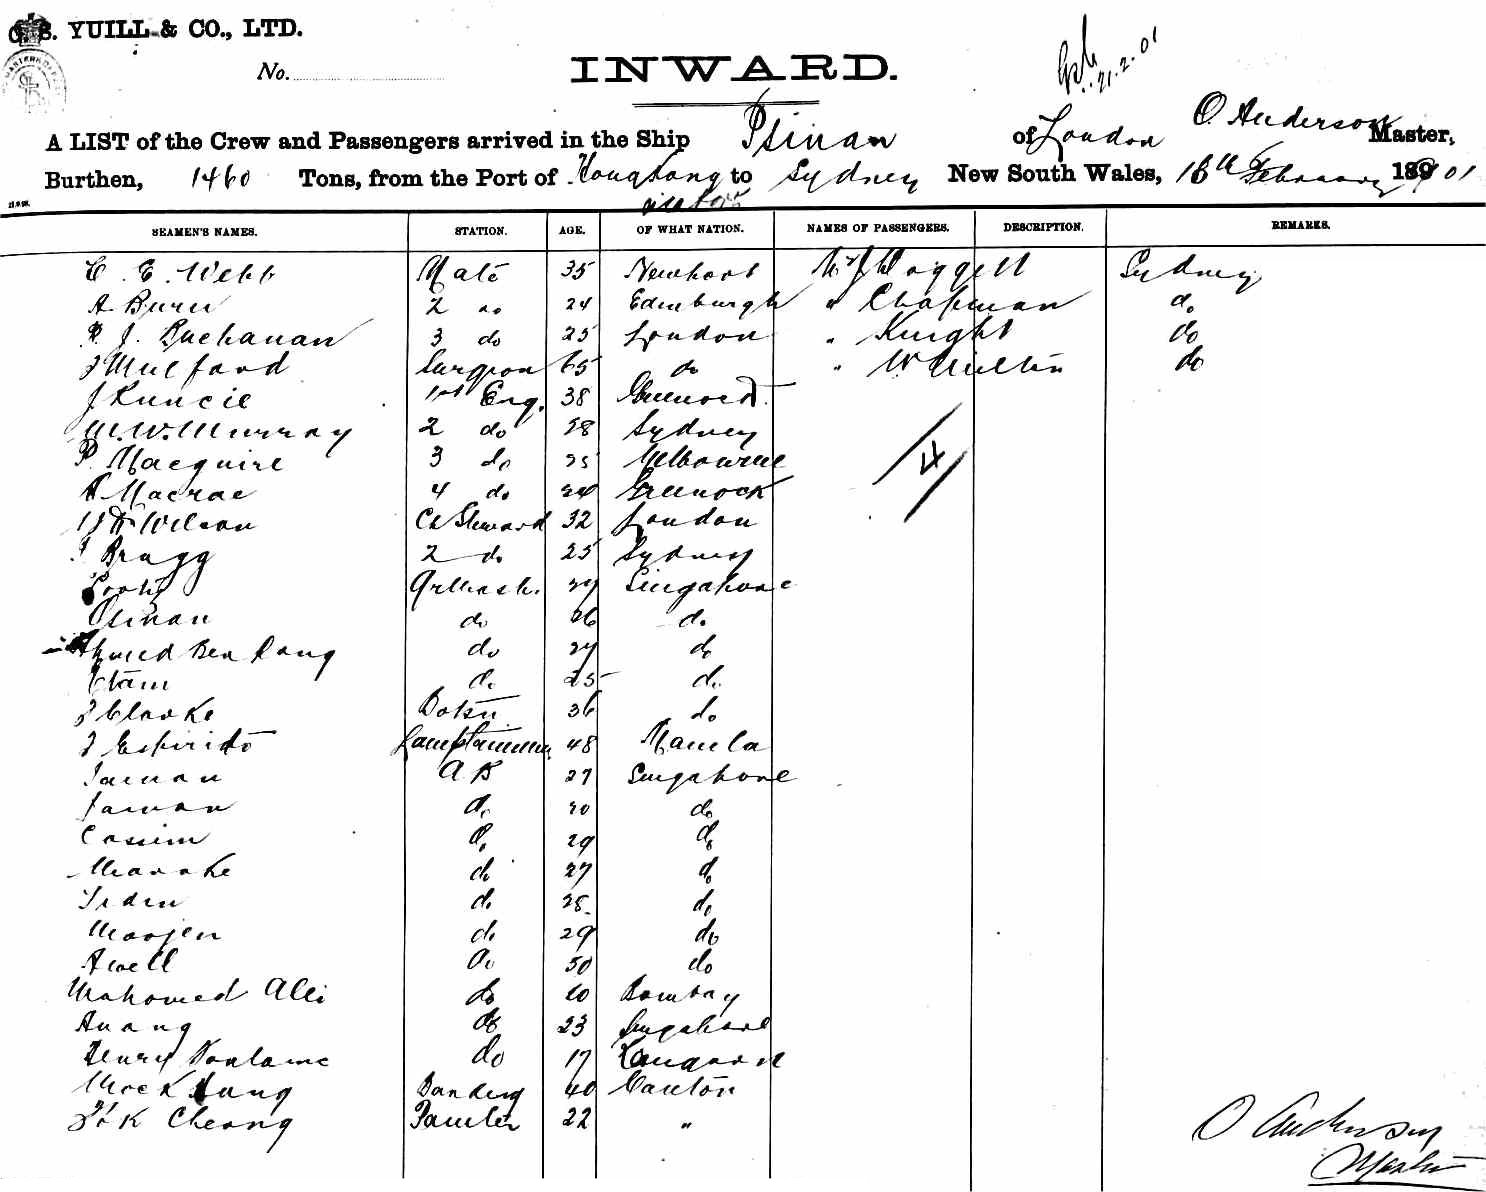 C. B. YUILL & CO., LTD.
No.
INWARD.
21.2.01
A LIST of the Crew and Passengers arrived in the Ship Tsinan of London O. Anderson Master,
Burthen, 1460 Tons, from the Port of Hongkong to Sydney New South Wales, 18th February 1901
SEAMEN'S NAMES. STATION. AGE. OF WHAT NATION. NAMES OF PASSENGERS. DESCRIPTION. REMARKS.
C. E. Webb Mate 35 Newport Doggett Sydney
A Burn 2 do 24 Edinburgh " Chapman do
R. J. Buchanan 3 do 25 London " Knight do
J Mulford Surgeon 65 do " do
J Runcie 1st Eng. 38 Greenock
M. W. Murray 2 do 28 Sydney
P. Macquire 3 do 25 Melbourne
A Macrae 4 do 24 Greenock
4
Wilson Ch Steward 32 London
J Bragg 2 do 25 Sydney
Singapore
Osman do 26 do
Ahmed Ben do 27 do
Etam do 25 do
J Clarke Bosun 36 do
J Espirito Lamptrimmer 48 Manila
AB 27 Singapore
do do
Cassim do 29 do
do 27 do
do 28 do
do 29 do
Awell do 50 do
Mahomed Alli do Bombay
Auang do 23 Singapore
Henry do 17
40 Canton
Cheong 22 "
O Anderson
Master